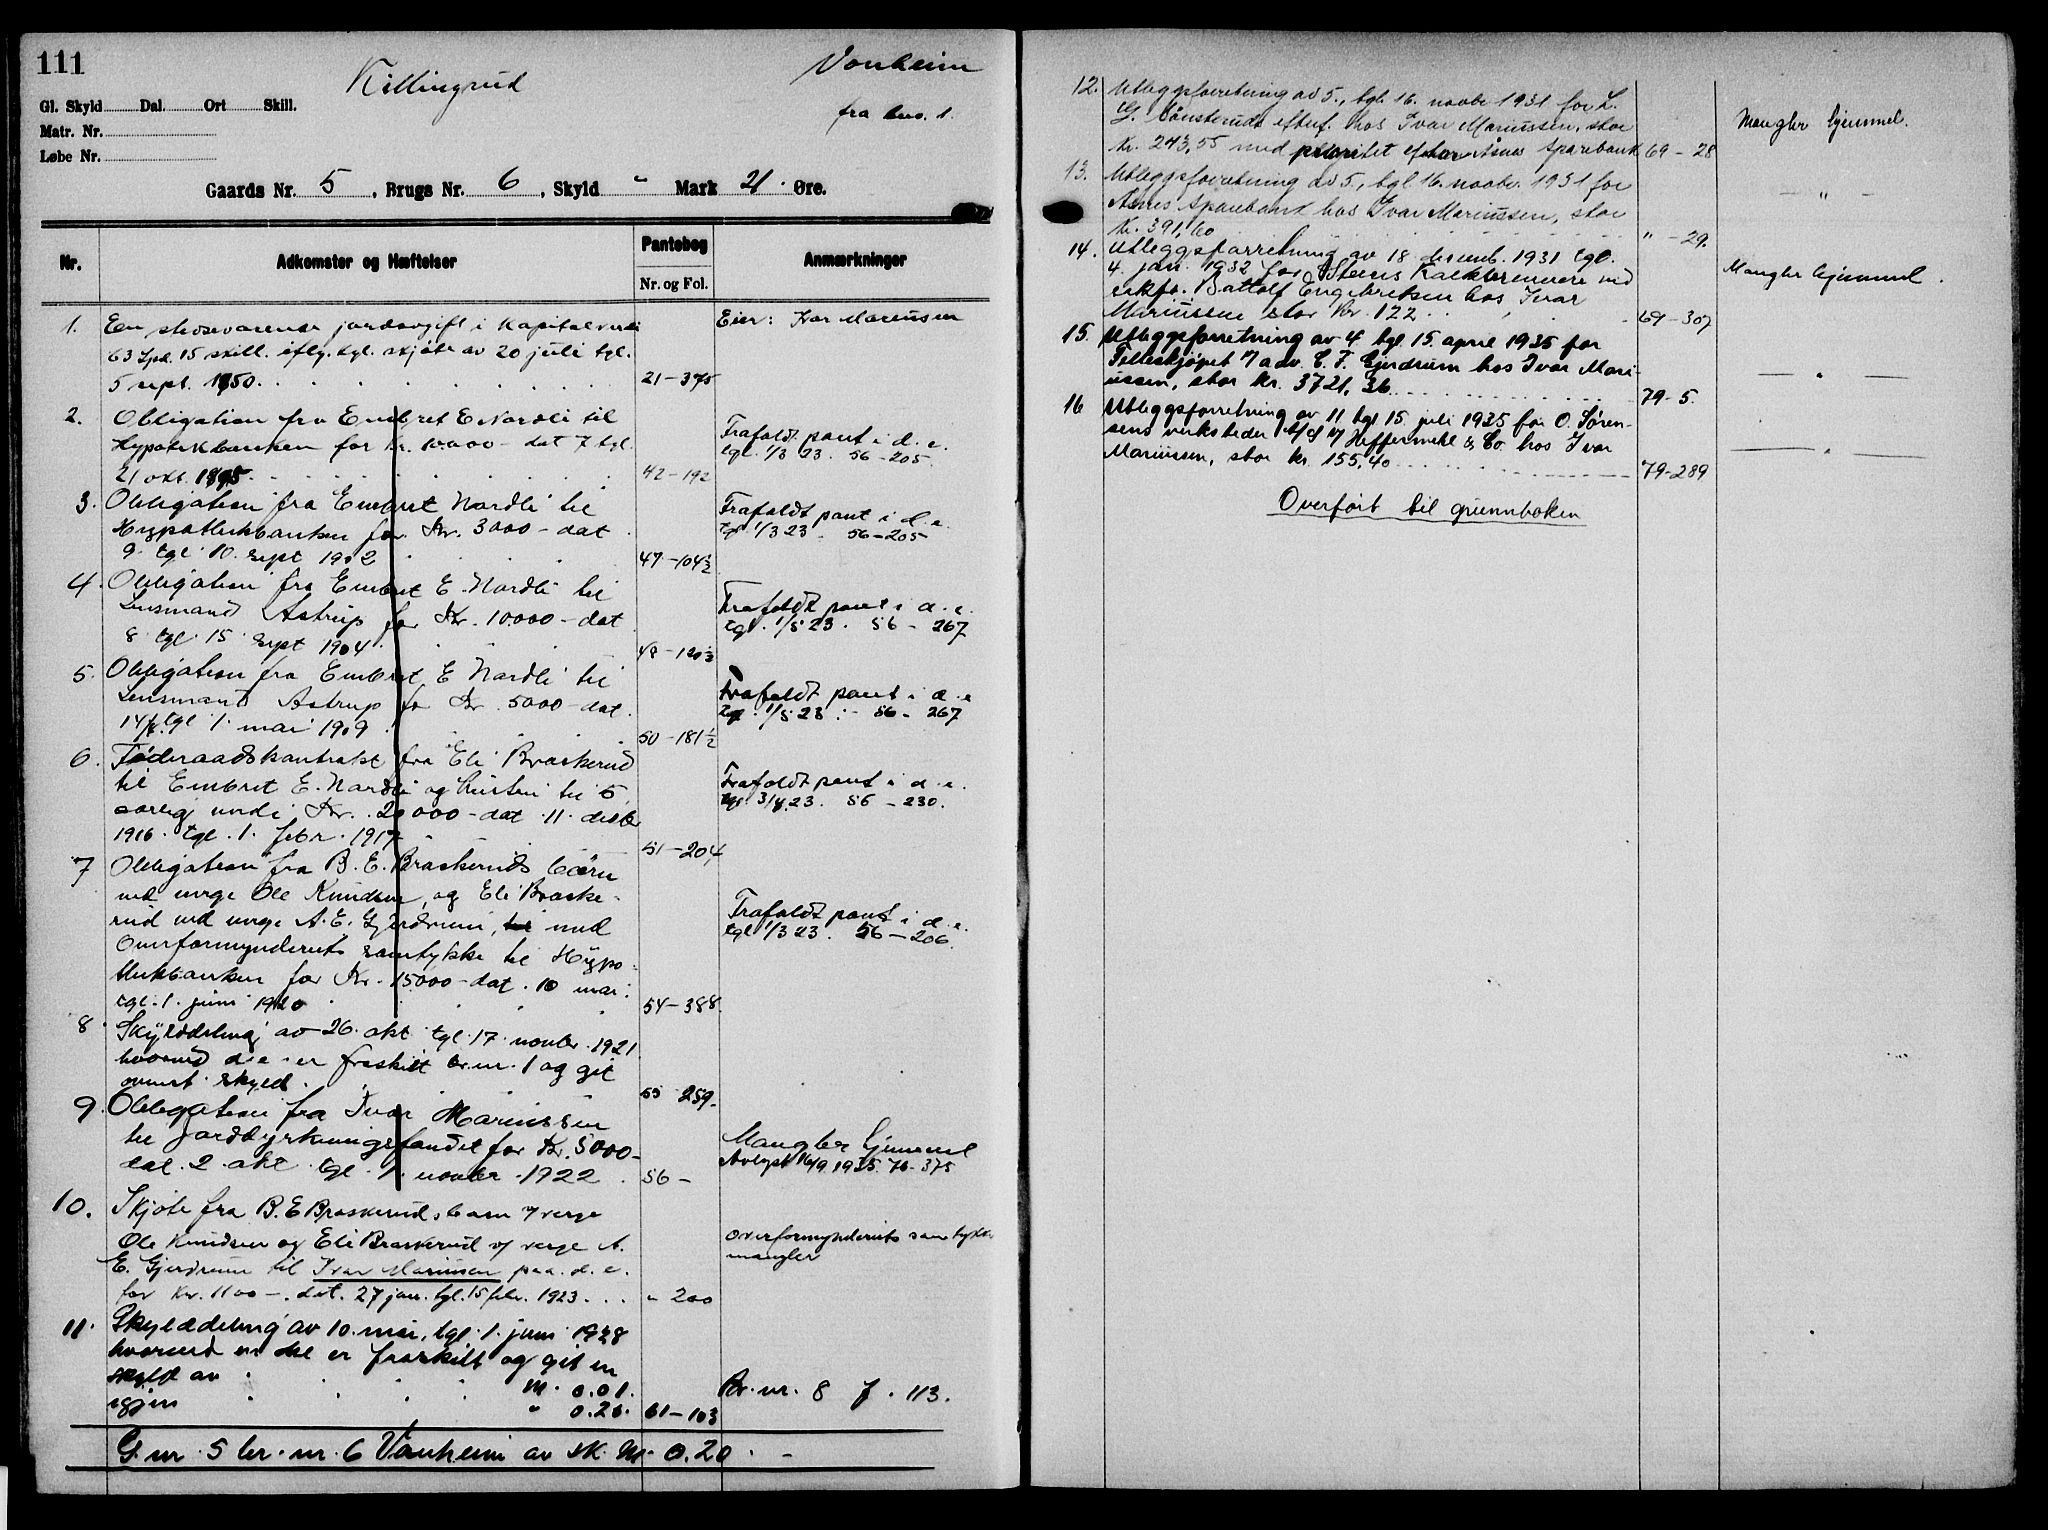 111
Killingrud
Vonheim
fra brno. 1.
Gl. Skyld Dal. Ort Skill.
Matr. Nr.
Løbe Nr.
Gaards Nr. 5, Brugs Nr. 6, Skyld " Mark 21. Øre.
Nr.
Adkomster og Hæftelser
Pantebog
Nr. og Fol.
Anmærkninger
1. Een stedsevarende jordavgift i Kapitalverdi
63 Spd. 15 skill. iflg. tgl. skjøte av 20 juli tgl.
5 sept. 1850. 21-375
Eier: Ivar Mariussen
2. Obligation fra Embret E Nordli til
Hypotekbanken for Kr. 10000- dat 7 tgl.
21 okt. 1895. 42-192
Frafaldt pant i d. e.
tgl. 1/3 23. 56-205.
3. Obligation fra Embret Nordli til
Hypothekbanken for Kr. 3000- dat
9. tgl. 10. sept 1902 47-104½
Frafaldt pant i d. e.
tgl 1/3 23. 56-205
4. Obligation fra Embret E. Nordli til
Lensmand Astrup for Kr. 10.000- dat
8. tgl. 15 sept 1904. 48-120½
Frafaldt pant i d. e.
tgl. 1/5 23. 56-267
5. Obligation fra Embret E Nordli til
Lensmand Astrup for Kr. 5000- dat.
14/4 tgl 1. mai 1909. 50-181½
Frafaldt pant i d. e
tgl. 1/5 23. 56-267
6. Føderaadskontrakt fra Eli Braskerud
til Embret E. Nordli og hustru til 5
aarlig verdi Kr. 20000- dat. 11. desbr
1916. tgl. 1. febr. 1917 51-204
Frafaldt pant i d. e.
tgl. 56-230.
7 Obligation fra B. E. Braskeruds børn
ved verge Ole Knudsen, og Eli Braske-
rud ved verge A. E. Gjerdrum, med
Overformynderiets samtykke til Hypo-
thekbanken for Kr. 15000- dat. 10 mai.
tgl. 1. juni 1920 54-388.
Frafaldt pant i d. e.
tgl 1/3 23. 56-206.
8. Skylddeling av 26. okt tgl. 17. novbr. 1921
hvorved d. e. er fraskilt br.nr. 1 og git
ovennt. skyld. 55 259.
9. Obligation fra Ivar Mariussen
til Jorddyrkningsfondet for Kr. 5000-
dat. 2. okt. tgl. 1. novbr. 1922. 56-
Mangler hjemmel
Avlyst 16/9 1935. 76-375
10. Skjøte fra B. E Braskeruds barn v/ verge
Ole Knudsen og Eli Braskerud v/ verge A.
E. Gjerdrum til Ivar Mariussen paa. d. e.
for Kr. 1100-. dat. 27 jan. tgl. 15 febr. 1923. " 200
overformynderiets samtykke
mangler
11. Skylddeling av 10. mai, tgl. 1. juni 1928
hvorved en del er fraskilt og git en
skyld av M. 0.01.
igjen " 0.20. 61-103
Br. nr. 8 f. 113.
G. nr. 5 br. nr. 6 Vonheim av sk. M. 0.20.-
12. Utleggsforretning av 5., tgl. 16. novbr 1931 for L.
G. Sønsteruds efterf. hos Ivar Mariussen, stor
Kr. 243,55 med prioritet efter Åsnes Sparebank 69-28
Mangler hjemmel.
13. Utleggsforretning av 5., tgl. 16. novbr. 1931 for
Åsnes Sparebank hos Ivar Mariussen, stor
Kr. 391,60 " -29.
- " -
14. Utleggsforretning av 18. desemb. 1931 tgl.
4. jan. 1932 for Steens Frakterenseri ved
Battolf Engebretsen hos Ivar
Mariussen stor kr. 122. 69-307
Mangler hjemmel.
15. Utleggsforretning av 4 tgl. 15. april 1935 for
Felleskjøpet v/ adv. E. F. Gjerdrum hos Ivar Mari-
ussen, stor kr. 3721,36 79-5.
- " -
16 Utleggsforretning av 11 tgl 15. juli 1935 for O. Søren-
sens verksteder v/ Heffermehl & Co. hos Ivar
Mariussen, stor kr. 155,40 79-289
- " -
Overført til grunnboken